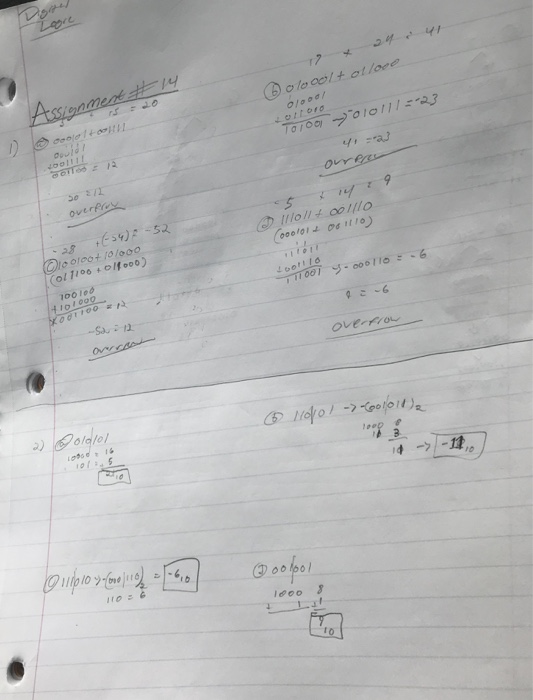 Digital
Logic
Assignment # 14
1)
5 + 15 = 20
ⓐ 000101 + 001111
000101
+001111
001100 = 12
20 ≠ 12
overflow
17 + 24 = 41
ⓑ 010001 + 011000
010001
+011000
101001 → -010111 = -23
41 = -23
overflow
-28 + (-24) = -52
ⓒ 100100 + 101000
(011100 + 011000)
100100
+101000
001100 = 12
-52 = 12
overflow
-5 + 14 = 9
ⓓ 111011 + 001110
(000101 + 001110)
111011
+001110
111001 → -000110 = -6
9 = -6
overflow
2)
010101
10000 = 16
101 = 5
ⓑ 110101 → -(001011)₂
1000 8
11 3
11 → -11₁₀
ⓒ 111010 → -(000110)₂ = -6₁₀
110 = 6
ⓓ 001001
1000 8
+ 1 +1
9
10